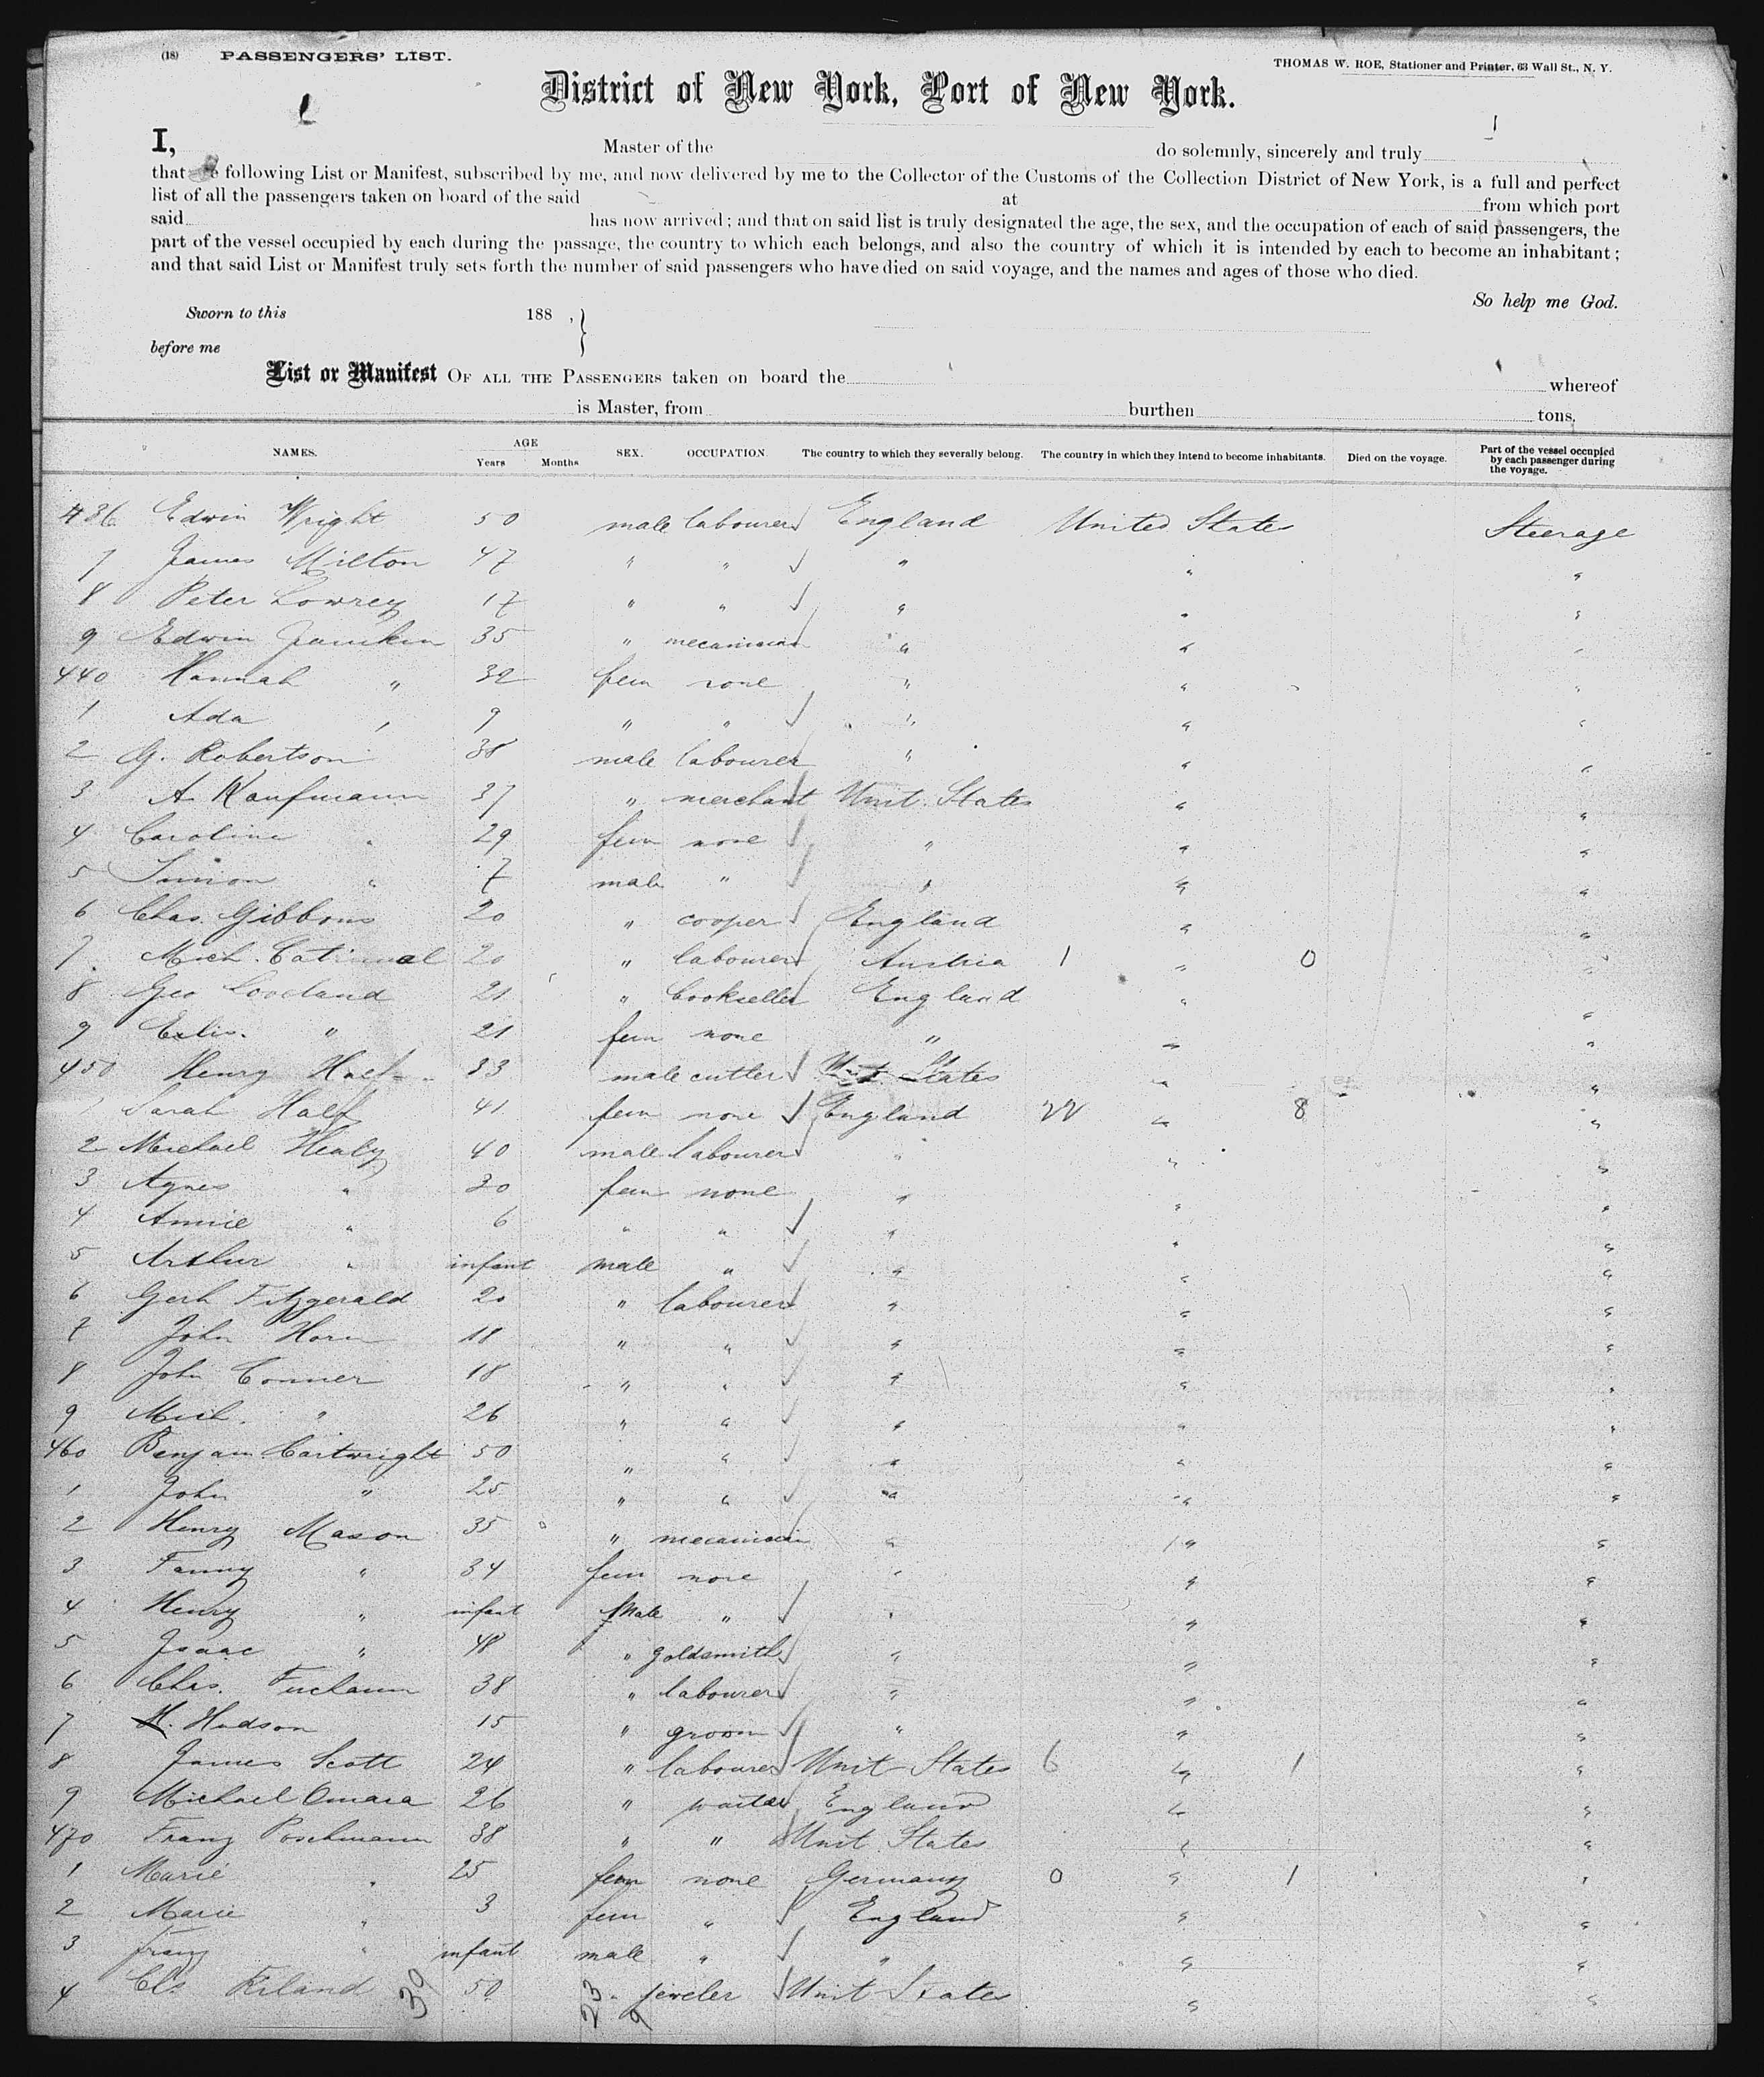 (18) PASSENGERS' LIST.
THOMAS W. ROE, Stationer and Printer, 63 Wall St., N. Y.
District of New York, Port of New York.
I, Master of the do solemnly, sincerely and truly
that following List or Manifest, subscribed by me, and now delivered by me to the Collector of the Customs of the Collection District of New York, is a full and perfect
list of all the passengers taken on board of the said at from which port
said has now arrived; and that on said list is truly designated the age, the sex, and the occupation of each of said passengers, the
part of the vessel occupied by each during the passage, the country to which each belongs, and also the country of which it is intended by each to become an inhabitant;
and that said List or Manifest truly sets forth the number of said passengers who have died on said voyage, and the names and ages of those who died.
So help me God.
Sworn to this 188 ,
before me
List or Manifest OF ALL THE PASSENGERS taken on board the whereof
is Master, from burthen tons.
NAMES. AGE Years Months SEX. OCCUPATION. The country to which they severally belong. The country in which they intend to become inhabitants. Died on the voyage. Part of the vessel occupied by each passenger during the voyage.
436 Edwin Wright 50 male labourer England United States Steerage
7 James Milton 47 " " " " "
8 Peter Lowrey 17 " " " " "
9 Edwin 35 " mecanician " " "
440 Hannah " 32 fem none " " "
1 Ada " 9 " " " " "
2 G. Robertson 38 male labourer " " "
3 A. Kaufmann 37 " merchant Unit. States " "
4 Caroline " 29 fem none " " "
5 Simon " 7 male " " " "
6 Chas. Gibbons 20 " cooper England " "
7 Mich. 20 " labourer Austria 1 " 0 "
8 Geo Loveland 21 " bookseller England " "
9 Eelis. " 21 fem none " " "
450 Henry 33 male cutler Unit. States " "
1 Sarah Half 41 fem none England 22 " 8 "
2 Michael Healy 40 male labourer " " "
3 Agnes " 30 fem none " " "
4 Annie " 6 " " " " "
5 Arthur " infant male " " " "
6 Gerh Fitzgerald 20 " labourer " " "
7 John Horn 18 " " " " "
8 John Conner 18 " " " " "
9 Mich. " 26 " " " " "
460 Benjam. Cartwright 50 " " " " "
1 John " 25 " " " " "
2 Henry Mason 35 " mecanician " " "
3 Fanny " 34 fem none " " "
4 Henry " infant male " " " "
5 Isaac " 48 " goldsmith " " "
6 Chas. 38 " labourer " " "
7 H. Hudson 15 " groom " " "
8 James Scott 24 " labourer Unit States 6 " 1 "
9 Michael Omara 26 " waiter England " "
470 Franz Poschmann 38 " " Unit. States " "
1 Marie " 25 fem none Germany 0 " 1 "
2 Marie " 3 fem " England " "
3 Franz " infant male " " " "
4 50 " jeweler Unit States " "
39 23 9